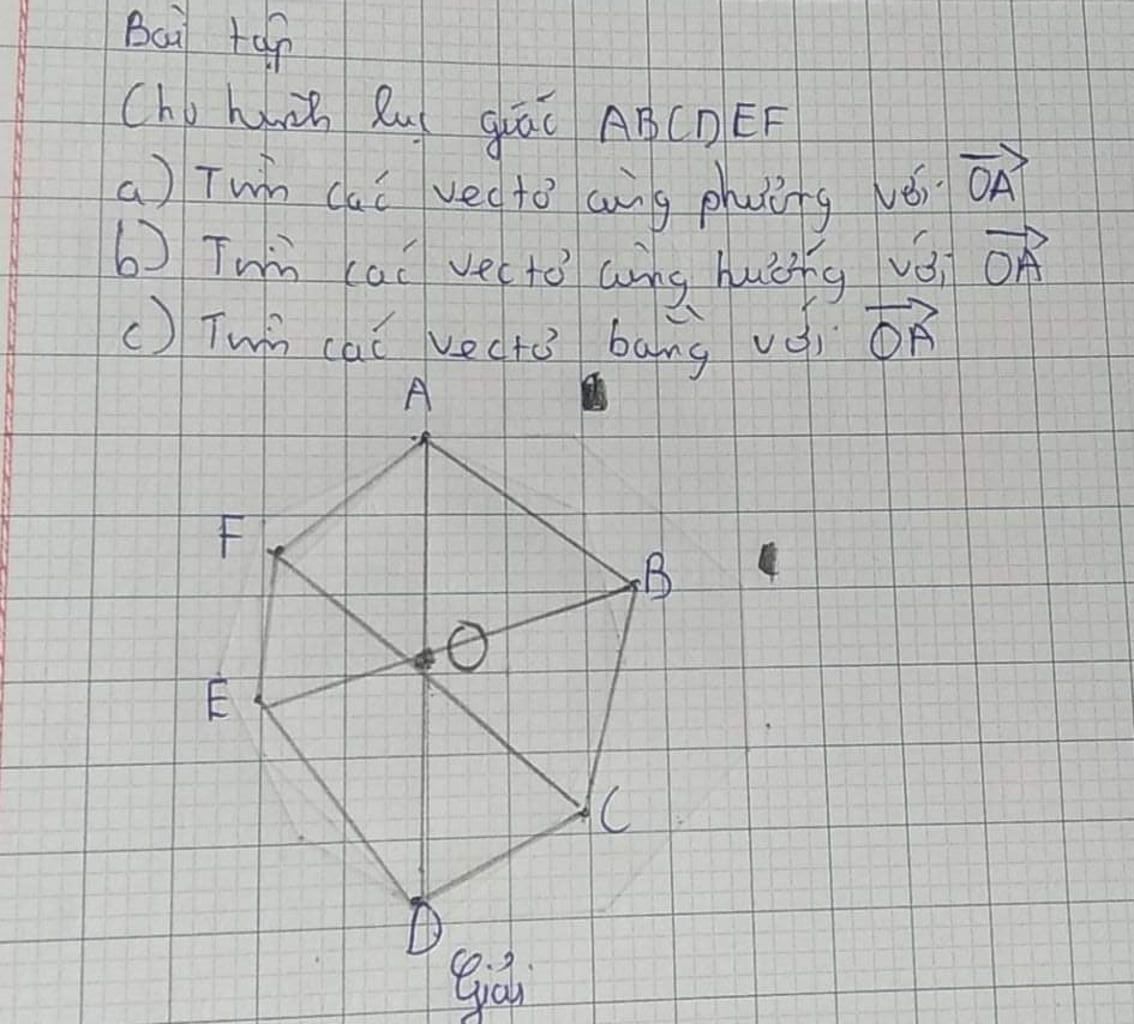 Bài tập
Cho hình lục giác ABCDEF
a) Tìm các vectơ cùng phương với OA
b) Tìm các vectơ cùng hướng với OA
c) Tìm các vectơ bằng với OA
A
F
B
O
E
C
D
Giải